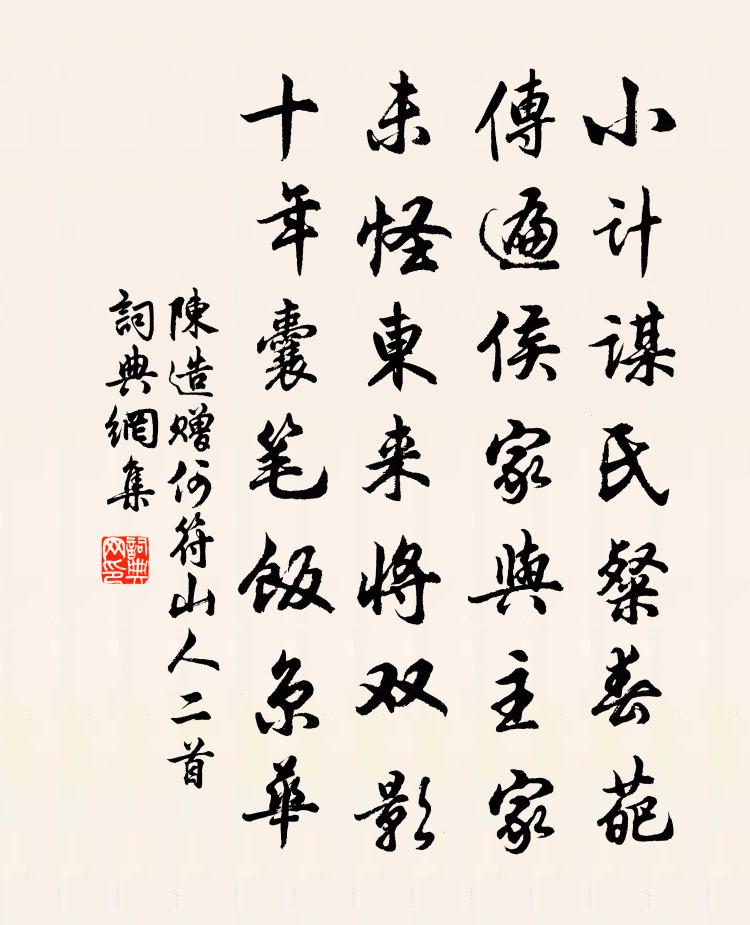 小计谋氏粲春葩
傳遍侯家與主家
未怪東来將双影
十年囊笔飯京華
陳造赠何符山人二首
詞典網集
詞典网印